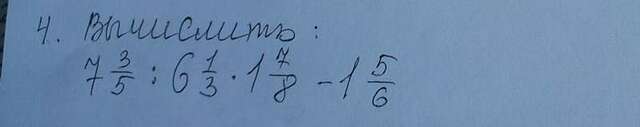 4. Вычислить:
7 3/5 : 6 1/3 · 1 7/8 - 1 5/6